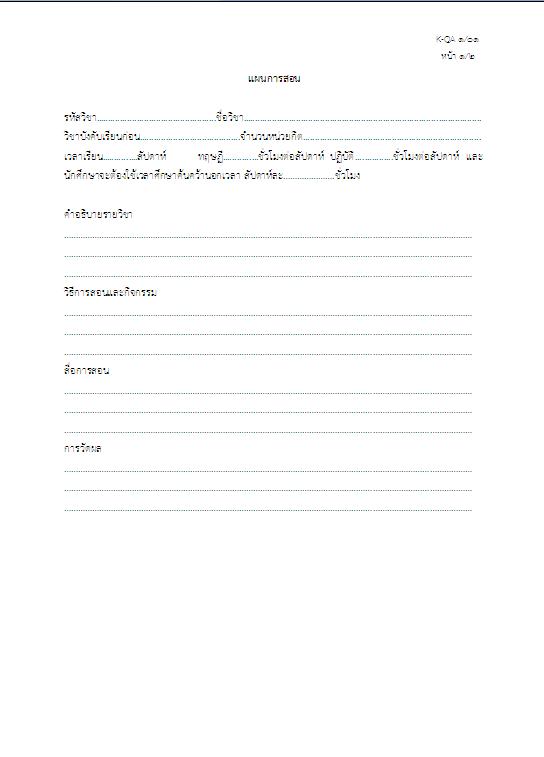 K-QA ๑/๐๑
หน้า ๑/๒
แผนการสอน
รหัสวิชา............................................ชื่อวิชา........................................................................................
วิชาบังคับเรียนก่อน.....................................จำนวนหน่วยกิต..................................................................
เวลาเรียน.............สัปดาห์ ทฤษฎี.............ชั่วโมงต่อสัปดาห์ ปฏิบัติ..............ชั่วโมงต่อสัปดาห์ และ
นักศึกษาจะต้องใช้เวลาศึกษาค้นคว้านอกเวลา สัปดาห์ละ...................ชั่วโมง
คำอธิบายรายวิชา
วิธีการสอนและกิจกรรม
สื่อการสอน
การวัดผล